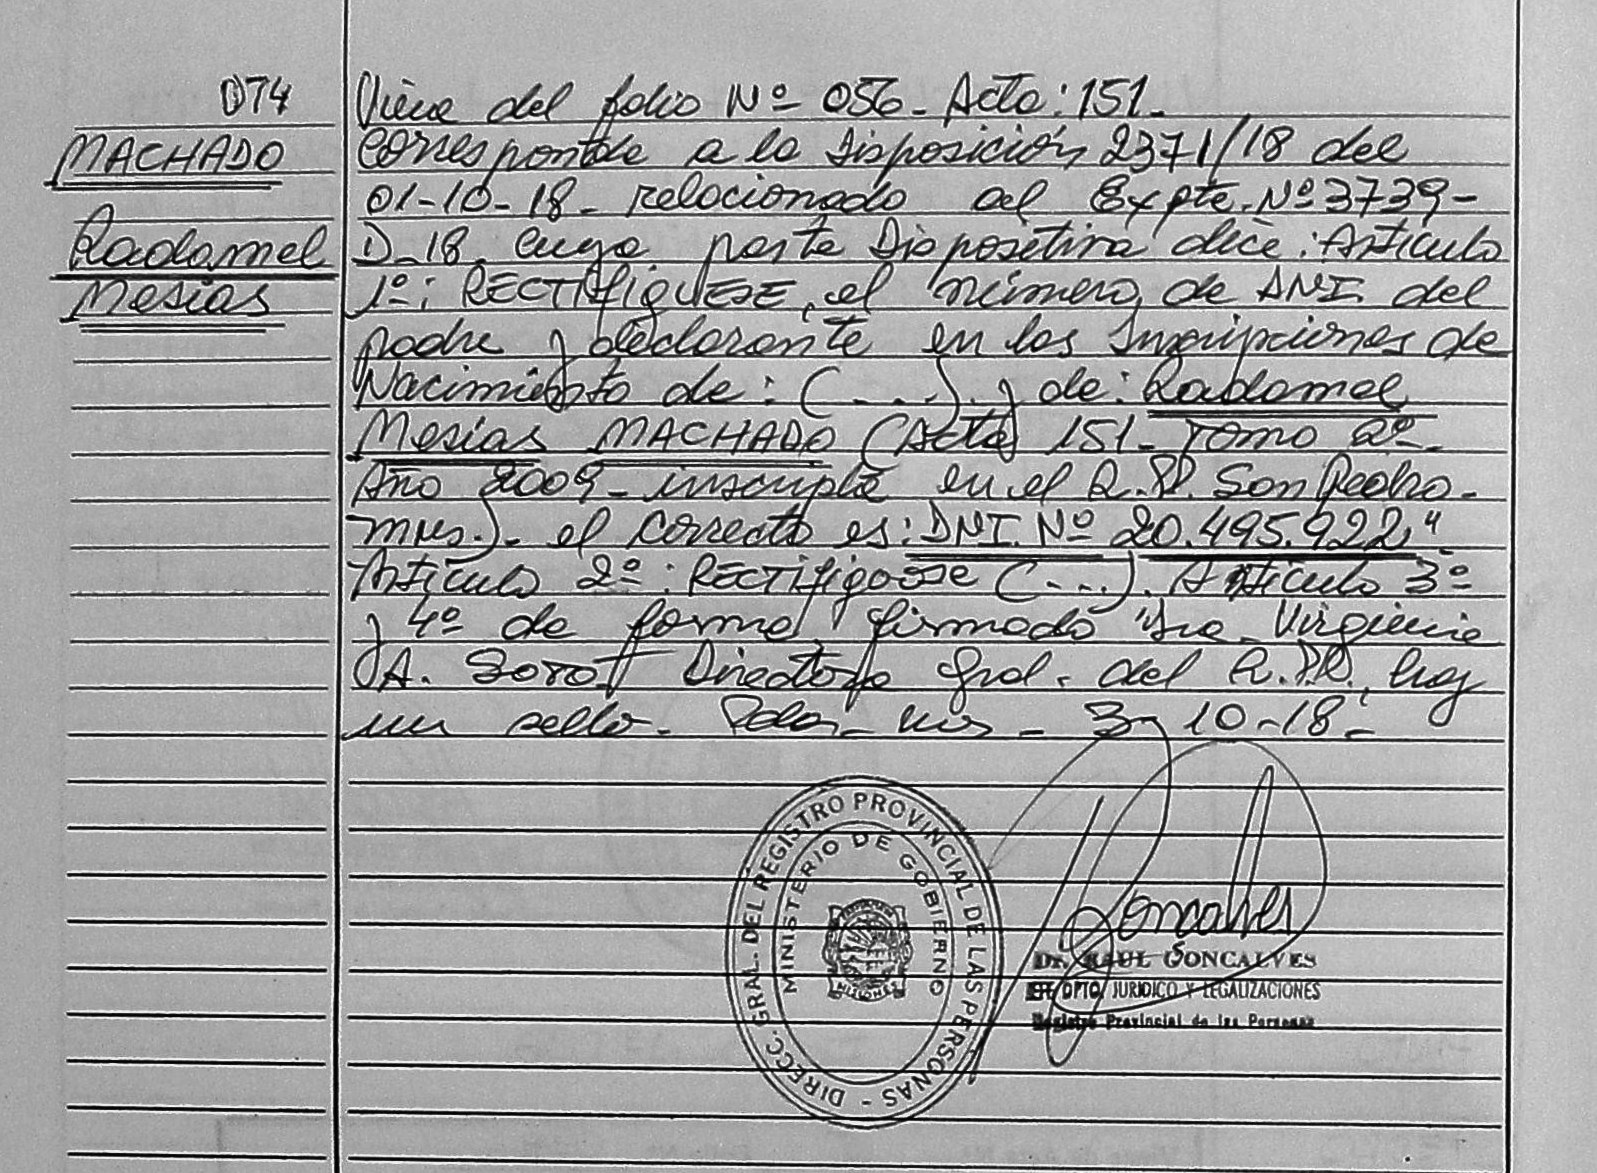 074
MACHADO
Radamel
Mesias
Viene del folio Nº 056- Acta: 151-
Corresponde a la Disposición 2371/18 del
01-10-18- relacionado al Expte. Nº 3739-
D-18 cuya parte Dispositiva dice: Artículo
1º: RECTIFIQUESE, el número de DNI del
padre y declarante en las Inscripciones de
Nacimiento de: (....) y de: Radamel
Mesias MACHADO (Acta 151- Tomo 2º-
Año 2009- inscripta en el R.P.P. San Pedro-
Mnes.)- el correcto es: DNI. Nº 20.495.922"
Artículo 2º: RECTIFIQUESE (....). Artículo 3º
y 4º de forma, firmado Dra. Virginia
A. Soto Directora Gral. del R.P.P., hay
un sello- Pdas- Mns- 3-10-18-
DIRECC. GRAL. DEL REGISTRO PROVINCIAL DE LAS PERSONAS -
MINISTERIO DE GOBIERNO
MISIONES
Goncalves
Dr. RAUL GONCALVES
JEFE DPTO. JURIDICO Y LEGALIZACIONES
Registro Provincial de las Personas